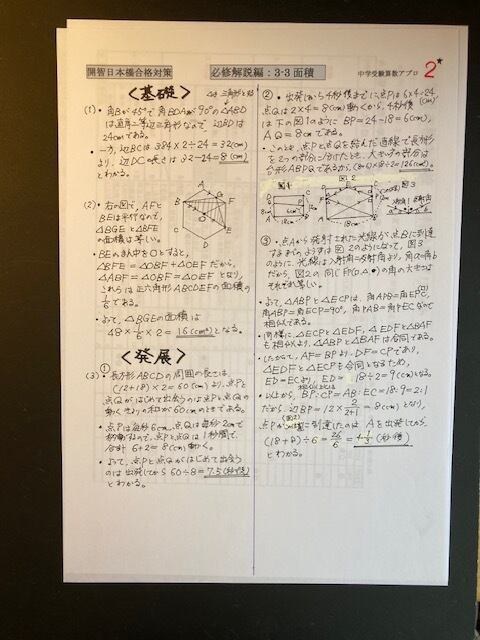 開智日本橋合格対策
必修解説編:3-3 面積
中学受験算数アプロ
2
<基礎>
△は三角形と読
(1)・角Bが45°で角BDAが90°の△ABD
は直角二等辺三角形なので、辺BDは
24cmである。
・一方、辺BCは384×2÷24=32(cm)
より、辺DCの長さは32-24=8(cm)
とわかる。
(2)・右の図で、AFと
BEは平行なので、
△BGEと△BFE
の面積は等しい。
・BEのまん中をOとすると、
△BFE=△OBF+△OEFだから、
△ABF=△OBF=△OEFとなり、
これらは正六角形ABCDEFの面積の
1/6である。
・よって、△BGEの面積は
48×1/6×2=16(cm²)となる。
A
B
C
D
E
F
G
O
<発展>
(3)・①
長方形ABCDの周囲の長さは、
(12+18)×2=60(cm)より、点Pと
点Qがはじめて出会うのは点Pと点Qの
動く長さの和が60cmのときである。
・点Pは毎秒6cm、点Qは毎秒2cmで
移動するので、点Pと点Qは1秒間で、
合計6+2=8(cm)動く。
・よって、点Pと点Qがはじめて出会う
のは出発してから60÷8=7.5(秒後)
とわかる。
②・出発してから4秒後までに、点Pは6×4=24(cm)
点Qは2×4=8(cm)動くから、4秒後
は下の図1のように BP=24-18=6(cm)、
AQ=8cmである。
・このとき、点Pと点Qを結んだ直線で長方形
を2つの部分に分けたとき、大きい方の部分は
台形ABPQであるから、
図1
図2
図3
18cm
③・点Aから発射された光線が点Bに到達
するまでのようすは図2のようになって、図3
のように、光線は入射角=反射角より、角a=角b
だから、図2の同じ印の角の大きさは
それぞれ等しい。
・よって、△ABPと△ECPは、角APB=角EPC、
角ABP=角ECP=90°、角PAB=角PECなので
相似である。
・同様に、△ECPと△EDF、△EDFと△BAF
も相似より、△ABPと△BAFは合同である。
・したがって、AF=BPより、DF=CPであり、
△EDFと△ECPも合同となるため、
ED=ECより、ED=18÷2=9(cm)となる。
・以上から、BP:CP=AB:EC=18:9=2:1
だから、辺BP=12×2/(2+1)=8(cm)となり、